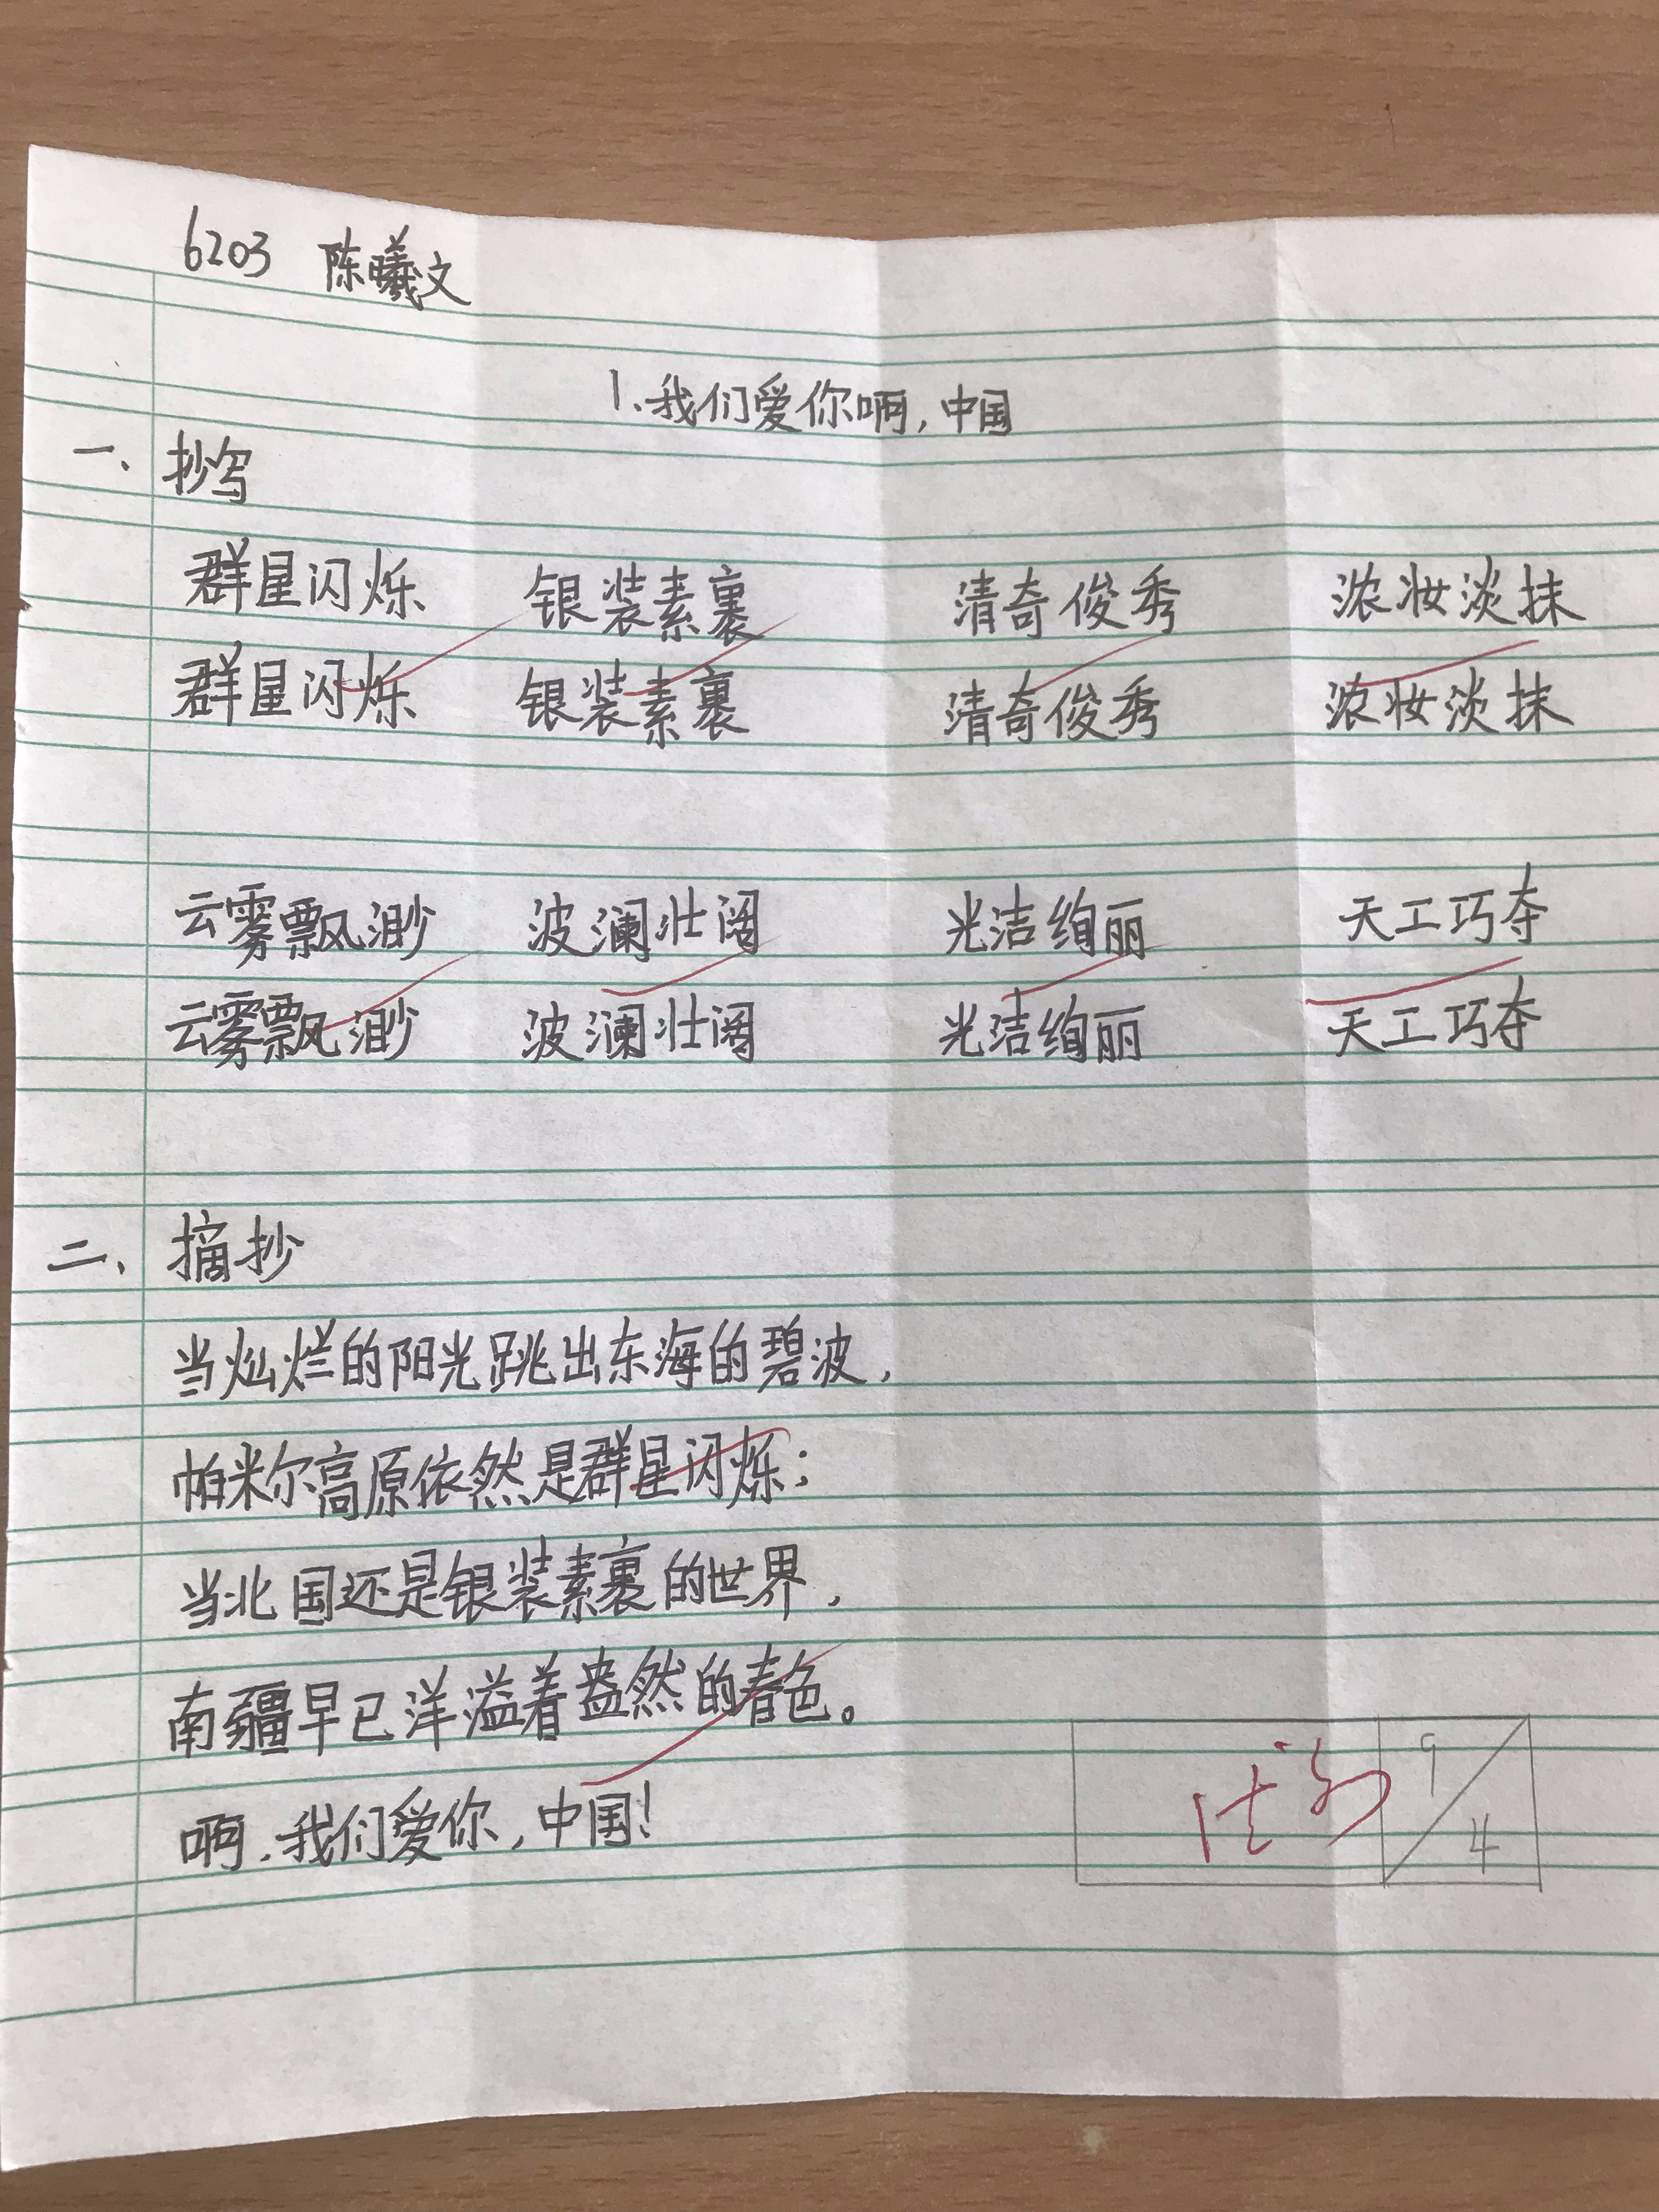 6203 陈曦文
1.我们爱你啊,中国
一、抄写
群星闪烁 银装素裹 清奇俊秀 浓妆淡抹
群星闪烁 银装素裹 清奇俊秀 浓妆淡抹
云雾飘渺 波澜壮阔 光洁绚丽 天工巧夺
云雾飘渺 波澜壮阔 光洁绚丽 天工巧夺
二、摘抄
当灿烂的阳光跳出东海的碧波,
帕米尔高原依然是群星闪烁;
当北国还是银装素裹的世界,
南疆早已洋溢着盎然的春色。
啊,我们爱你,中国!
9/4